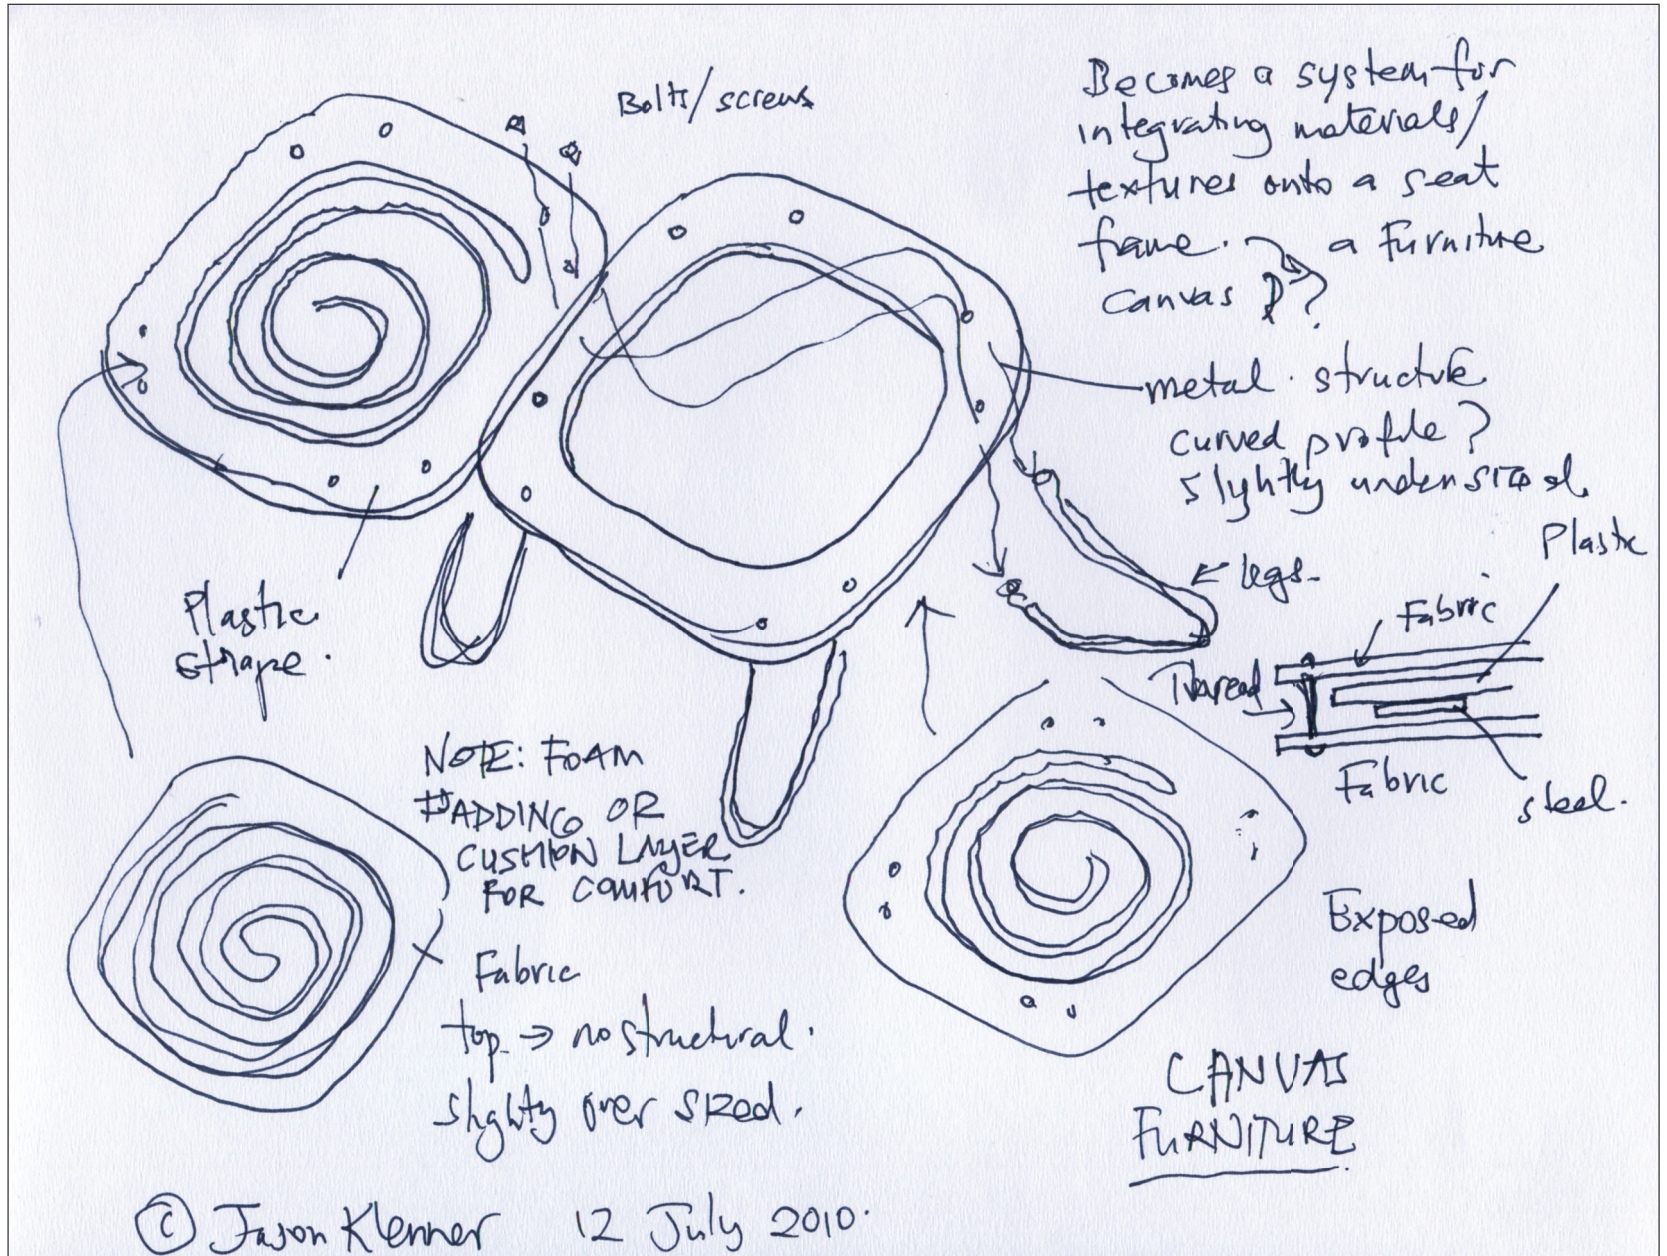 Bolts/screws
Becomes a system for
integrating materials/
textures onto a seat
frame. → a Furniture
canvas ?
metal structure
curved profile?
slightly undersized.
Plastic
shape.
← legs.
Plastic
Fabric
Thread
Fabric
steel.
NOTE: FOAM
PADDING OR
CUSHION LAYER
FOR COMFORT.
Fabric
top → no structural.
slightly over sized.
Exposed
edges
CANVAS
FURNITURE
© Jason Klenner 12 July 2010.